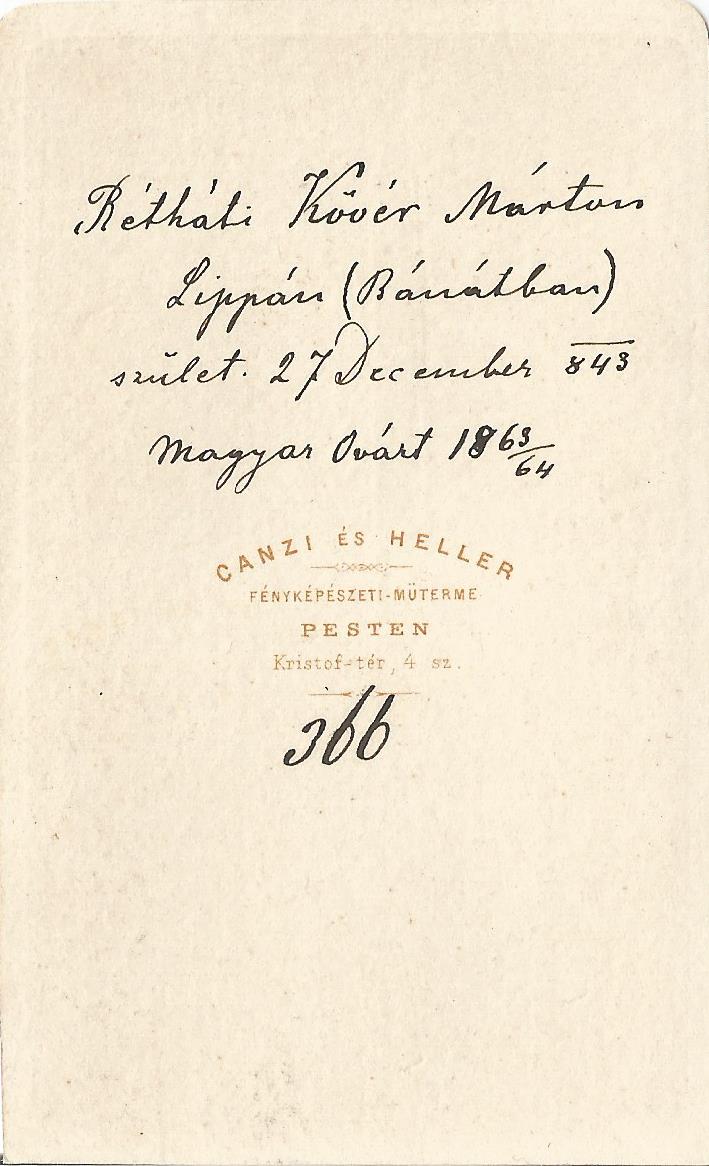 Rétháti Kövér Márton
Lippán (Bánátban)
szület. 27 December 843
Magyar Óvárt 1863/64
CANZI ÉS HELLER
FÉNYKÉPÉSZETI-MŰTERME
PESTEN
Kristof-tér, 4 sz.
366